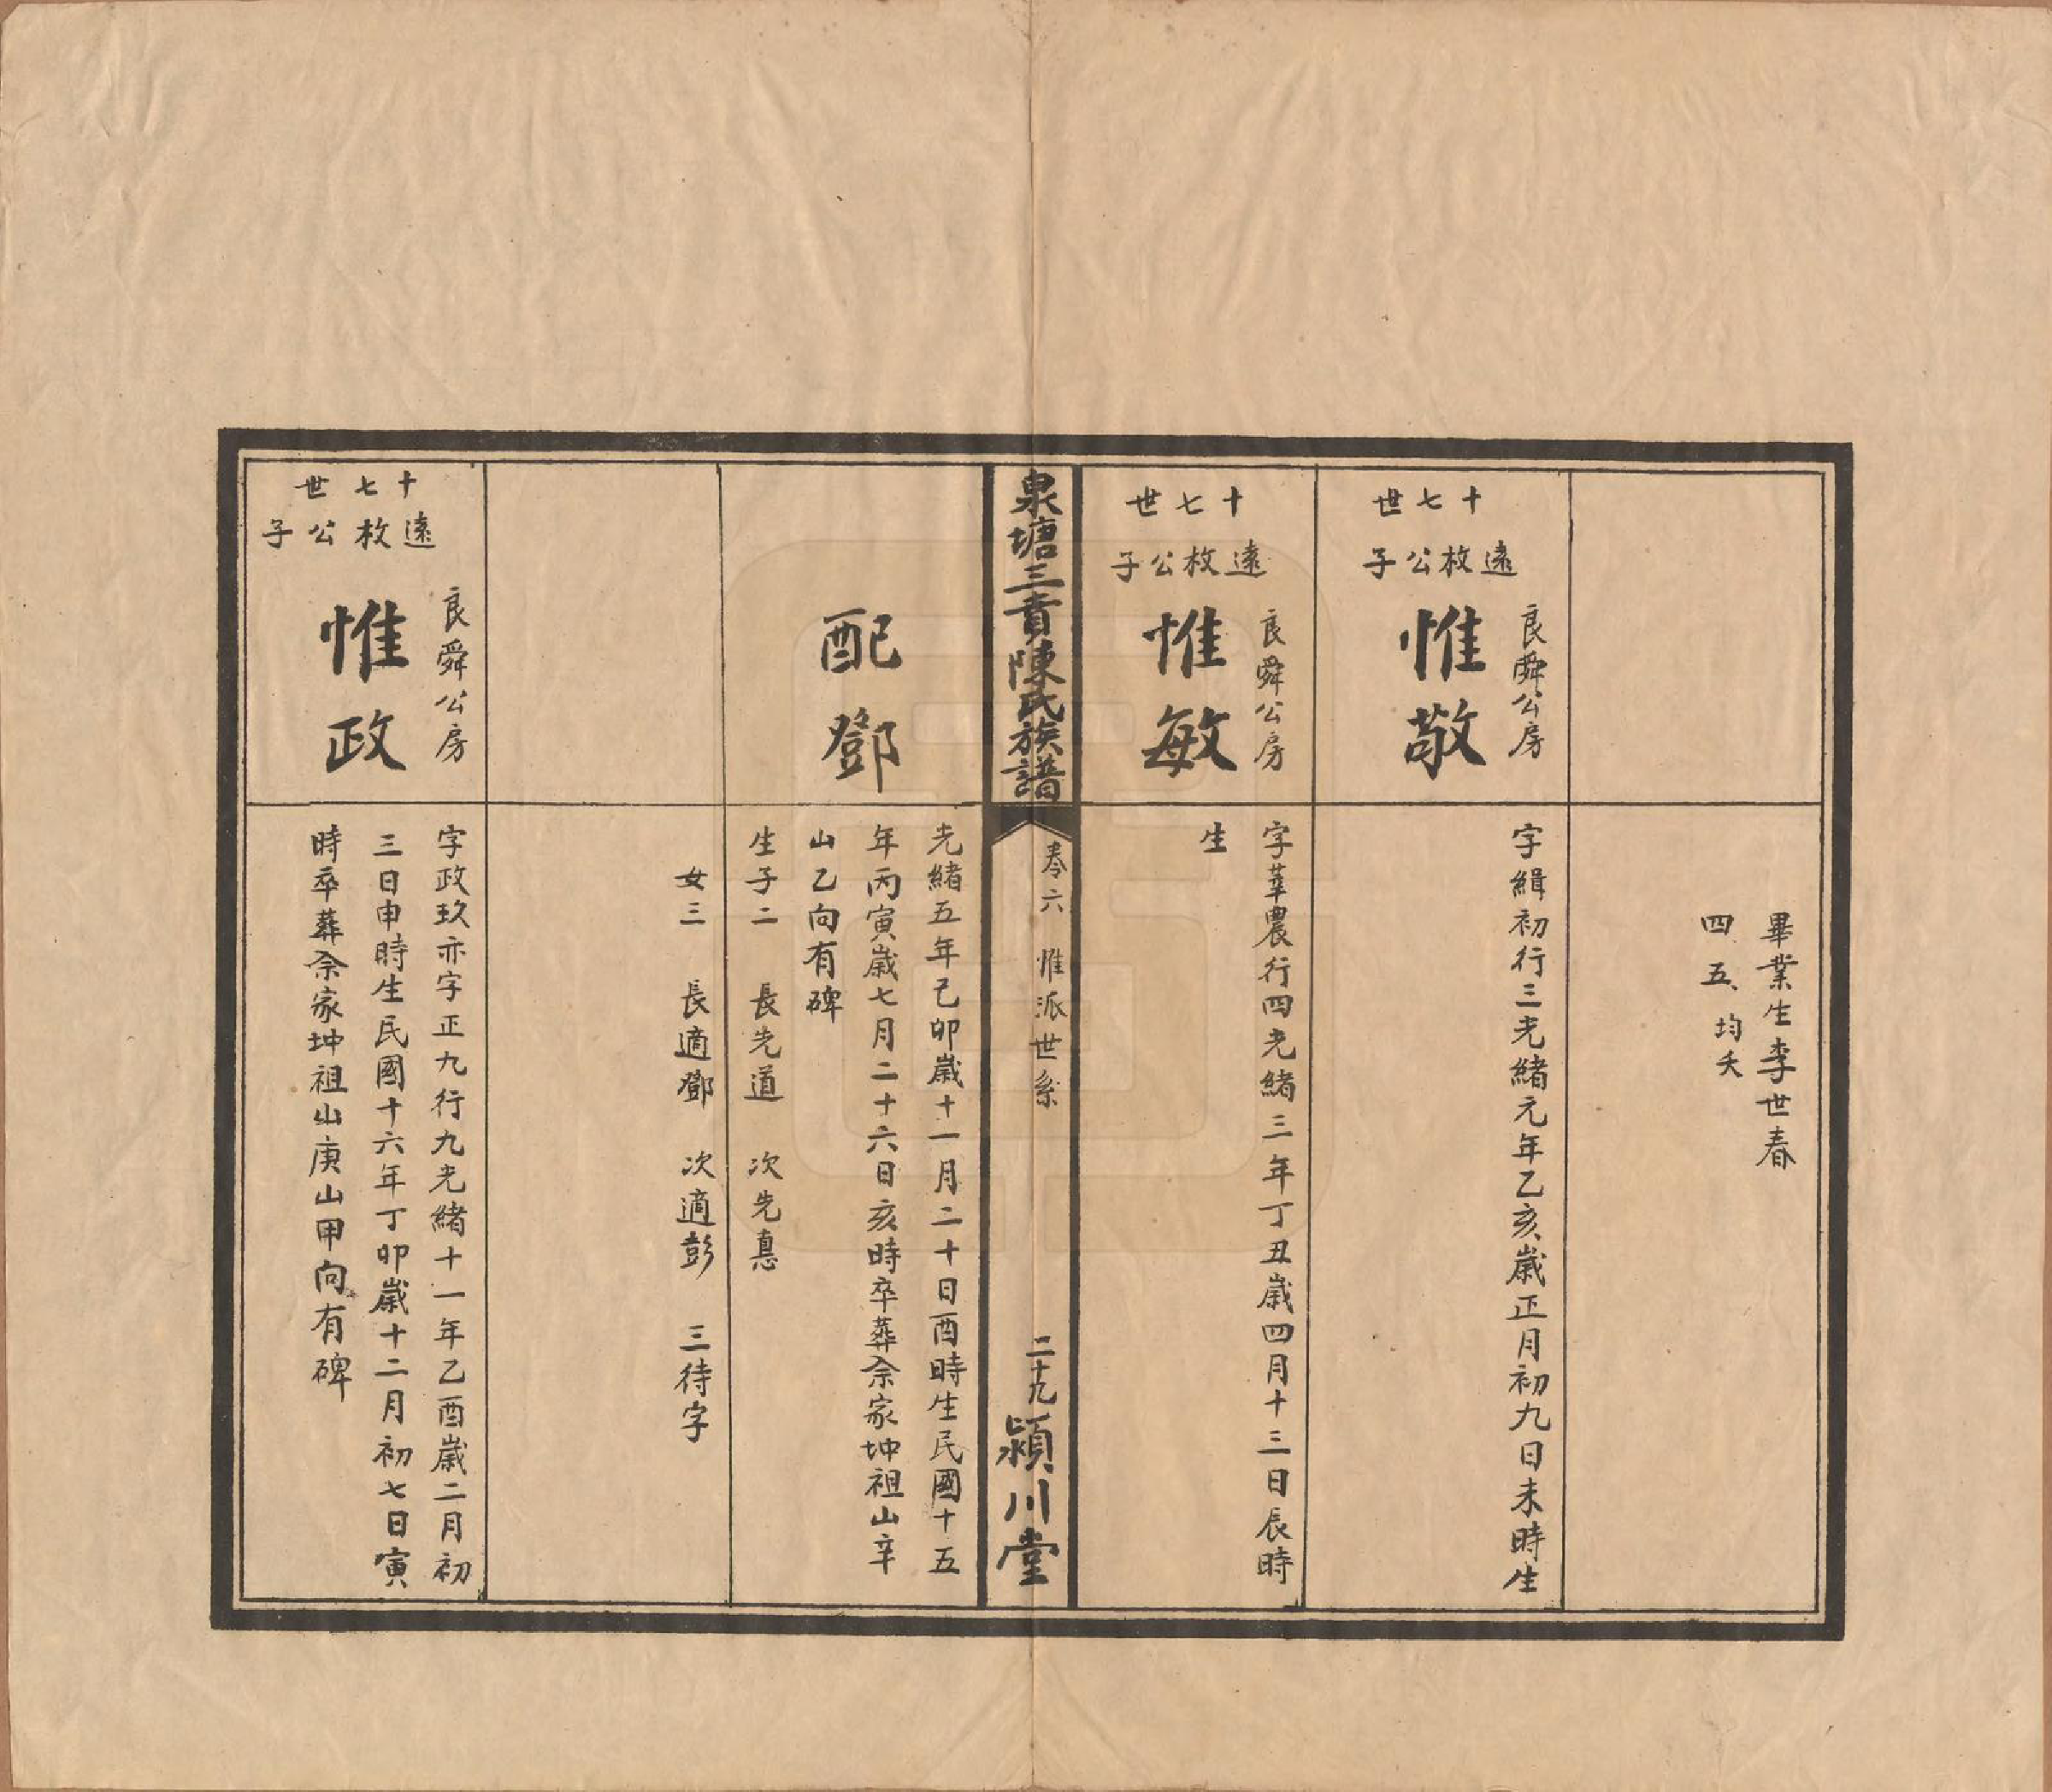 畢業生李世春
四五均夭
十七世
遠枚公子
良舜公房
惟敬
字緝初行三光緒元年乙亥歲正月初九日未時生
十七世
遠枚公子
良舜公房
惟敏
字莘農行四光緒三年丁丑歲四月十三日辰時
生
泉塘三賁陳氏族譜
卷六
惟派世系
二十九
潁川堂
配鄧
光緒五年己卯歲十一月二十日酉時生民國十五
年丙寅歲七月二十六日亥時卒葬佘家坤祖山辛
山乙向有碑
生子二 長先道 次先惪
女三 長適鄧 次適彭 三待字
十七世
遠枚公子
良舜公房
惟政
字政玖亦字正九行九光緒十一年乙酉歲二月初
三日申時生民國十六年丁卯歲十二月初七日寅
時卒葬佘家坤祖山庚山甲向有碑